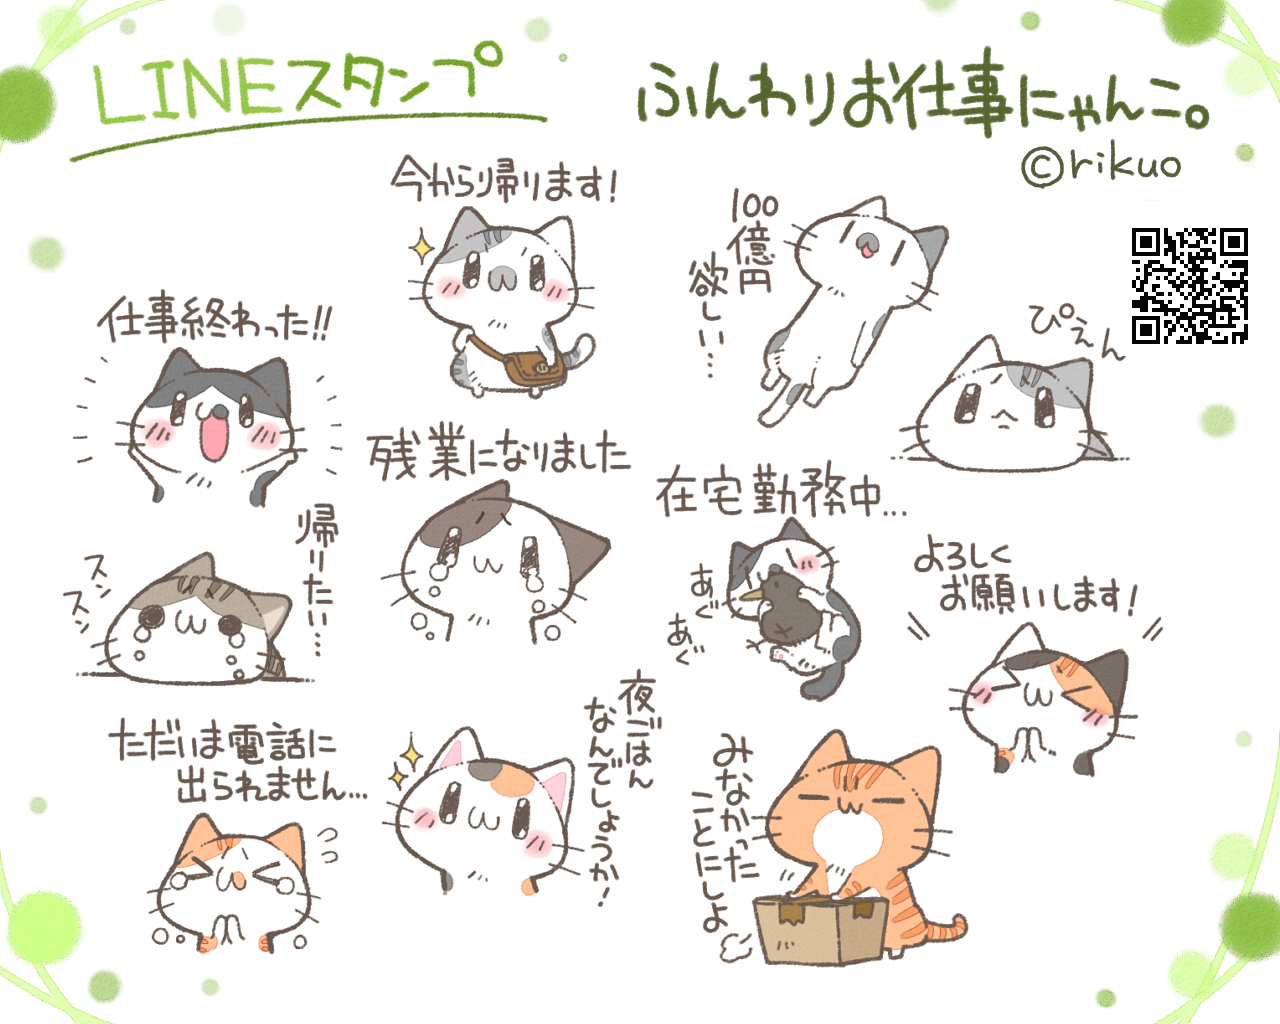 LINEスタンプ
ふんわりお仕事にゃんこ。
©rikuo
今から帰ります!
100億円
欲しい…
ぴえん
仕事終わった!!
残業になりました
在宅勤務中...
帰りたい…
スン
スン
あぐ
あぐ
よろしく
お願いします!
ただいま電話に
出られません...
夜ごはん
なんでしょうか!
みなかった
ことにしよ